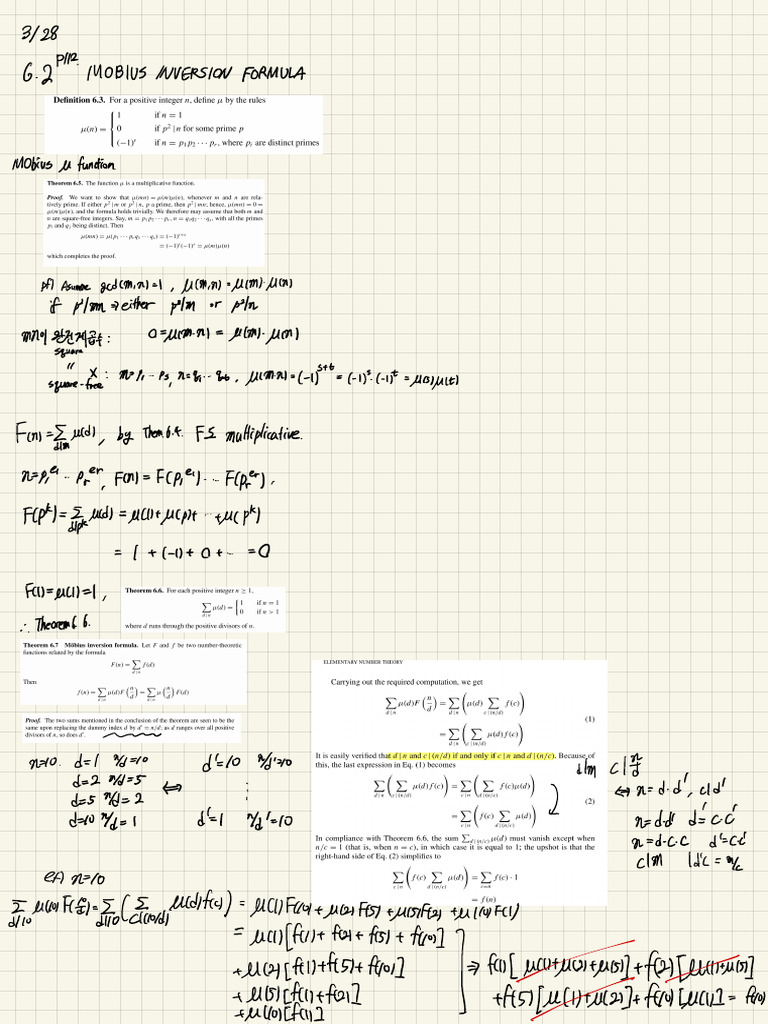 3/28
6.2 P112 MOBIUS INVERSION FORMULA
Definition 6.3. For a positive integer n, define μ by the rules
μ(n) = { 1 if n = 1
0 if p² | n for some prime p
(−1)^r if n = p₁p₂ ··· pᵣ, where pᵢ are distinct primes
MObius μ function
Theorem 6.5. The function μ is a multiplicative function.
Proof. We want to show that μ(mn) = μ(m)μ(n), whenever m and n are rela-
tively prime. If either p² | m or p² | n, p a prime, then p² | mn; hence, μ(mn) = 0 =
μ(m)μ(n), and the formula holds trivially. We therefore may assume that both m and
n are square-free integers. Say, m = p₁p₂ ··· pᵣ, n = q₁q₂ ··· qₛ, with all the primes
pᵢ and qⱼ being distinct. Then
μ(mn) = μ(p₁ ··· pᵣq₁ ··· qₛ) = (−1)^{r+s}
= (−1)^r(−1)^s = μ(m)μ(n)
which completes the proof.
pf) Assume gcd(m,n)=1, μ(m,n)=μ(m)·μ(n)
if p²/mn ⇒ either p²/m or p²/n
mn이 완전제곱수: 0=μ(m·n) = μ(m)·μ(n)
square
〃 X : m=p₁···pₛ, n=q₁···qₜ, μ(m·n)=(-1)^{s+t} = (-1)^s·(-1)^t = μ(s)μ(t)
square-free
F(n)=Σ_{d|n} μ(d), by Thom 6.4. F is multiplicative.
n=p₁^{e₁}···pᵣ^{er}, F(n)=F(p₁^{e₁})···F(pᵣ^{er}),
F(p^k)=Σ_{d|p^k} μ(d) = μ(1)+μ(p)+ ··· +μ(p^k)
= 1 + (-1) + 0 + ··· = 0
F(1)=μ(1)=1,
∴ Theorem 6.6.
Theorem 6.6. For each positive integer n ≥ 1,
Σ_{d|n} μ(d) = { 1 if n = 1
0 if n > 1
where d runs through the positive divisors of n.
Theorem 6.7 Möbius inversion formula. Let F and f be two number-theoretic
functions related by the formula
F(n) = Σ_{d|n} f(d)
Then
f(n) = Σ_{d|n} μ(d)F(n/d) = Σ_{d|n} μ(n/d)F(d)
Proof. The two sums mentioned in the conclusion of the theorem are seen to be the
same upon replacing the dummy index d by d′ = n/d; as d ranges over all positive
divisors of n, so does d′.
n=10. d=1 n/d=10 d'=10 n/d'=10
d=2 n/d=5 ⇔ ⋮
d=5 n/d=2
d=10 n/d=1 d'=1 n/d'=10
ELEMENTARY NUMBER THEORY
Carrying out the required computation, we get
Σ_{d|n} μ(d)F(n/d) = Σ_{d|n} (μ(d) Σ_{c|(n/d)} f(c))
= Σ_{d|n} (Σ_{c|(n/d)} μ(d)f(c)) (1)
It is easily verified that d | n and c | (n/d) if and only if c | n and d | (n/c). Because of
this, the last expression in Eq. (1) becomes
Σ_{d|n} (Σ_{c|(n/d)} μ(d)f(c)) = Σ_{c|n} (Σ_{d|(n/c)} f(c)μ(d))
= Σ_{c|n} (f(c) Σ_{d|(n/c)} μ(d)) (2)
In compliance with Theorem 6.6, the sum Σ_{d|(n/c)} μ(d) must vanish except when
n/c = 1 (that is, when n = c), in which case it is equal to 1; the upshot is that the
right-hand side of Eq. (2) simplifies to
Σ_{c|n} (f(c) Σ_{d|(n/c)} μ(d)) = Σ_{c=n} f(c) · 1
= f(n)
d|n c|n/d
⇔ n=d·d', c|d'
n=d·d' d'=c·c'
n=d·c·c d'=c·c'
c|n |d'c = n/c
ex) n=10
Σ_{d|10} μ(10)F(n/d)=Σ_{d|10}(Σ_{c|(10/d)} μ(d)f(c)) = μ(1)F(10)+μ(2)F(5)+μ(5)F(2)+μ(10)F(1)
= μ(1)[f(1)+f(2)+f(5)+f(10)]
+μ(2)[f(1)+f(5)+f(10)]
+μ(5)[f(1)+f(2)]
+μ(10)[f(1)]
⇒ f(1)[μ(1)+μ(2)+μ(5)]+f(2)[μ(1)+μ(5)]
+f(5)[μ(1)+μ(2)]+f(10)[μ(1)] = f(10)